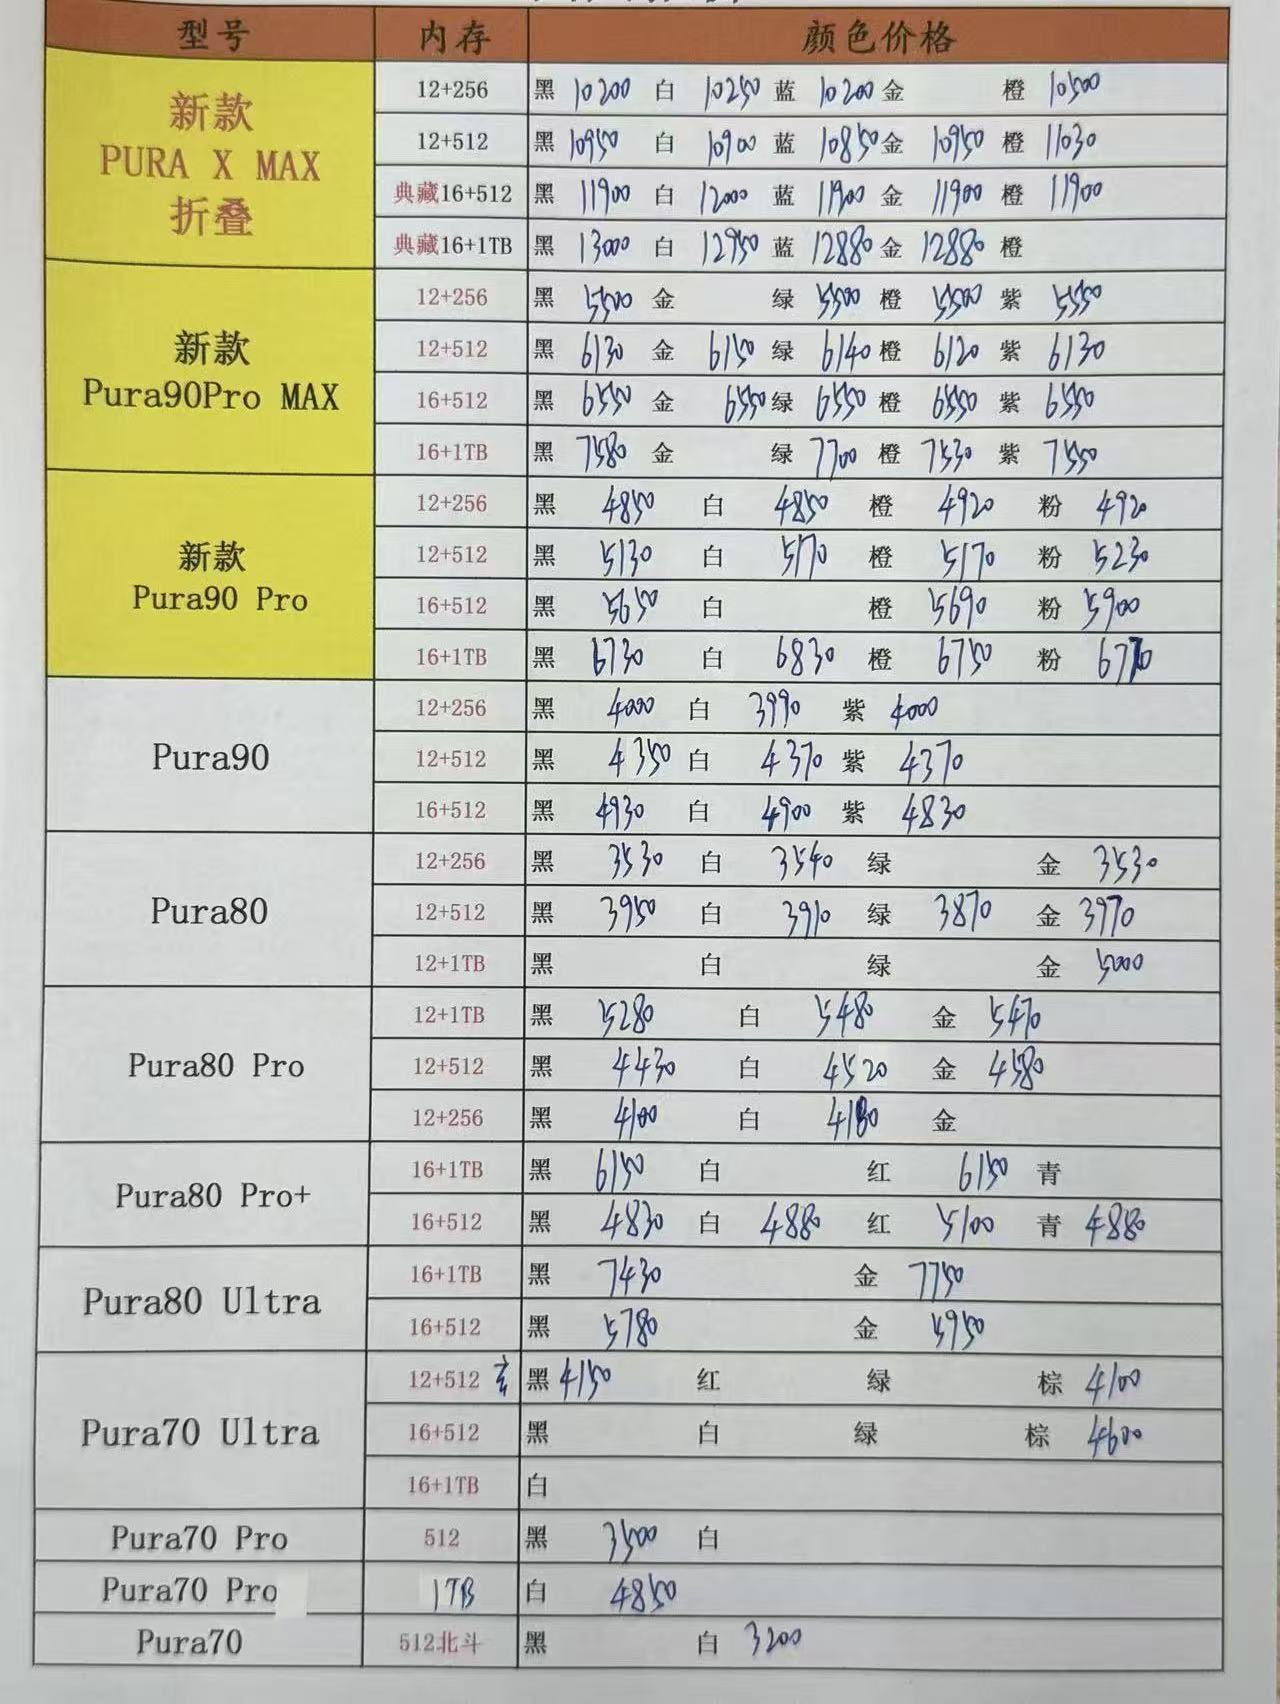 型号 内存 颜色价格
新款 PURA X MAX 折叠
12+256 黑 10200 白 10250 蓝 10200 金 橙 10500
12+512 黑 10950 白 10900 蓝 10850 金 10950 橙 11030
典藏16+512 黑 11900 白 12000 蓝 11900 金 11900 橙 11900
典藏16+1TB 黑 13000 白 12950 蓝 12880 金 12880 橙
新款 Pura90Pro MAX
12+256 黑 5500 金 绿 5500 橙 5500 紫 5550
12+512 黑 6130 金 6150 绿 6140 橙 6120 紫 6130
16+512 黑 6550 金 6550 绿 6550 橙 6550 紫 6550
16+1TB 黑 7580 金 绿 7700 橙 7530 紫 7550
新款 Pura90 Pro
12+256 黑 4850 白 4850 橙 4920 粉 4920
12+512 黑 5130 白 5170 橙 5170 粉 5230
16+512 黑 5650 白 橙 5690 粉 5900
16+1TB 黑 6730 白 6830 橙 6750 粉
Pura90
12+256 黑 4000 白 3990 紫 4000
12+512 黑 4350 白 4370 紫 4370
16+512 黑 4930 白 4900 紫 4830
Pura80
12+256 黑 3530 白 3540 绿 金 3530
12+512 黑 3950 白 3910 绿 3870 金 3970
12+1TB 黑 白 绿 金 5000
Pura80 Pro
12+1TB 黑 5280 白 5480 金 5470
12+512 黑 4430 白 4520 金 4580
12+256 黑 4100 白 4180 金
Pura80 Pro+
16+1TB 黑 6150 白 红 6150 青
16+512 黑 4830 白 4880 红 5100 青 4880
Pura80 Ultra
16+1TB 黑 7430 金 7750
16+512 黑 5780 金 5950
Pura70 Ultra
12+512 黑 4150 红 绿 棕 4100
16+512 黑 白 绿 棕 4600
16+1TB 白
Pura70 Pro 512 黑 3500 白
Pura70 Pro 1TB 白 4850
Pura70 512北斗 黑 白 3200